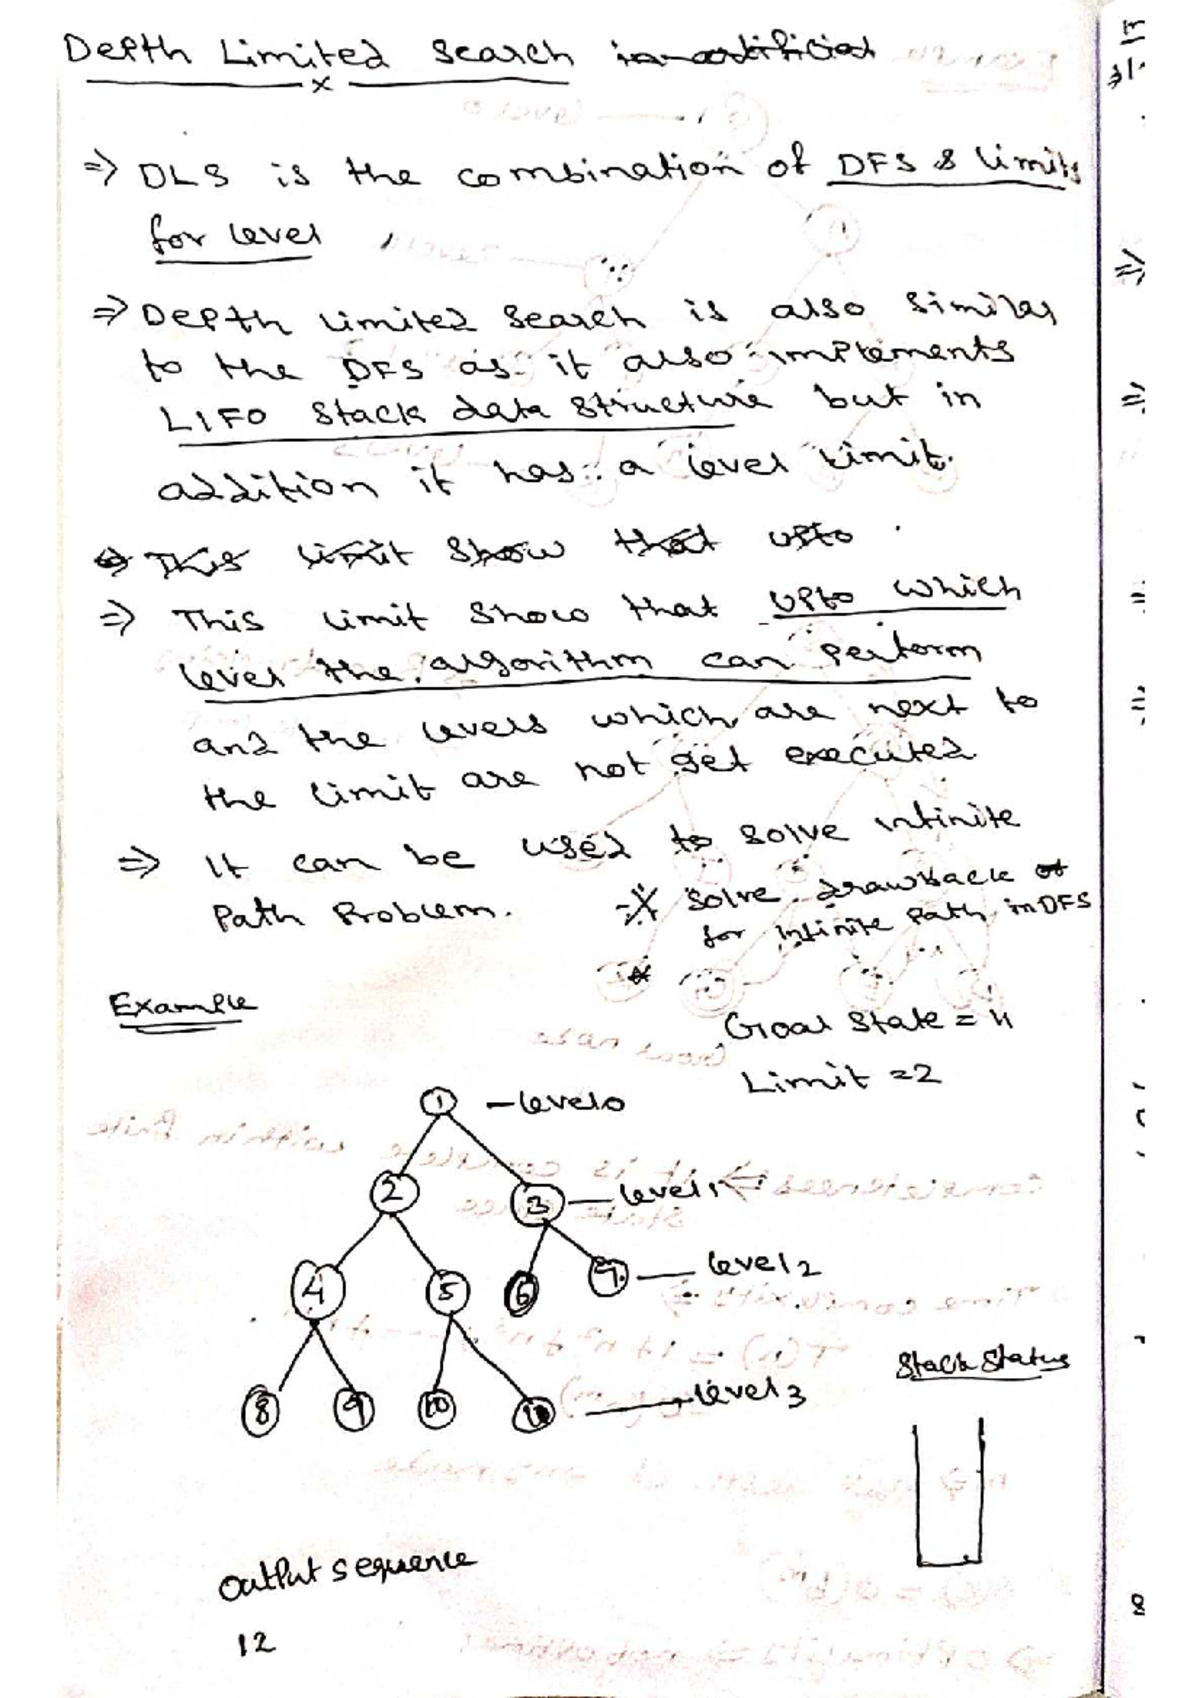 Depth Limited Search in artificial
⇒ DLS is the combination of DFS & limits
for level
⇒ Depth limited search is also similar
to the DFS as it also implements
LIFO stack data structure but in
addition it has a level limit.
⇒ This limit show that upto
⇒ This limit show that upto which
level the algorithm can perform
and the levels which are next to
the limit are not get executed.
⇒ It can be used to solve infinite
Path Problem.
Solve drawback of
for infinite path in DFS
Example
Goal State = 4
Limit = 2
1 - level 0
2 3 - level 1
4 5 6 7 - level 2
8 9 10 - level 3
Stack Status
output sequence
12